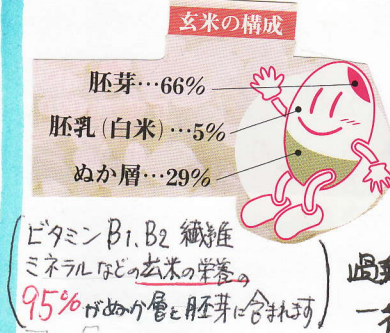 玄米の構成
胚芽…66%
胚乳(白米)…5%
ぬか層…29%
ビタミンB1、B2 繊維
ミネラルなどの玄米の栄養の
95%がぬか層と胚芽に含まれます